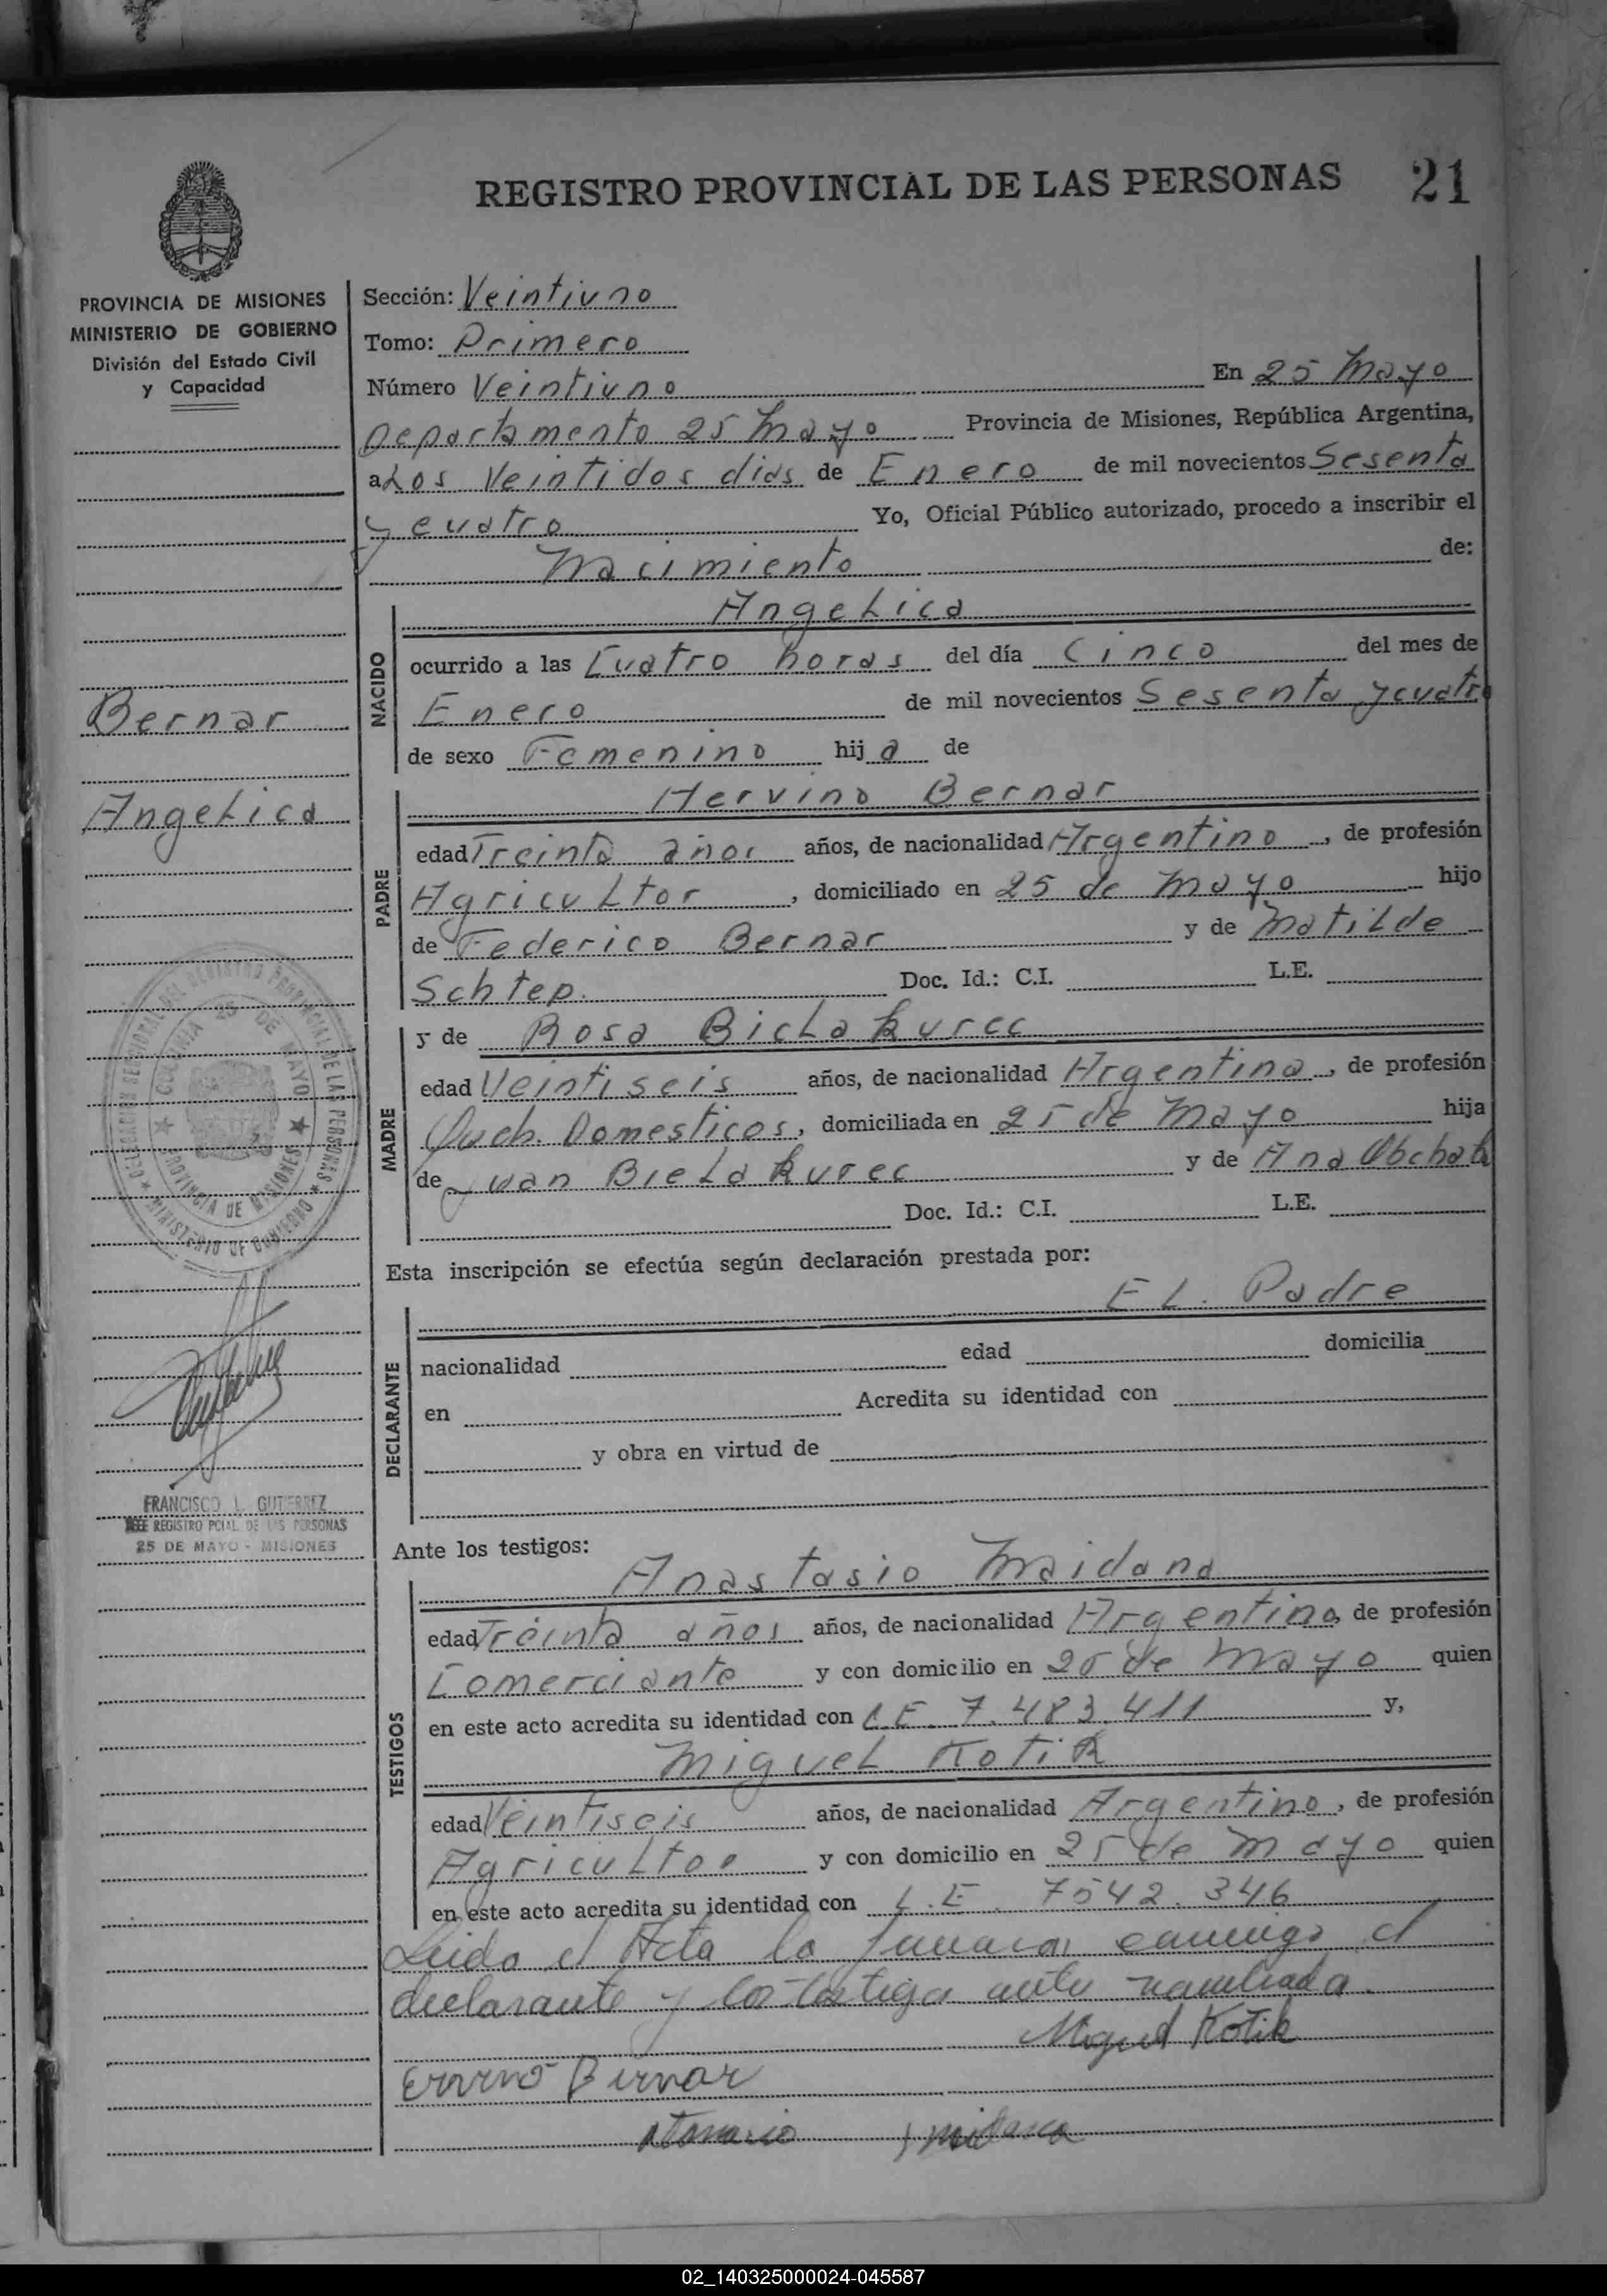 REGISTRO PROVINCIAL DE LAS PERSONAS 21
PROVINCIA DE MISIONES
MINISTERIO DE GOBIERNO
División del Estado Civil
y Capacidad
Bernar
Angelica
COLONIA 25 DE MAYO
PROVINCIA DE MISIONES
MINISTERIO DE GOBIERNO
FRANCISCO L. GUTIERREZ
JEFE REGISTRO PCIAL DE LAS PERSONAS
25 DE MAYO - MISIONES
Sección: Veintiuno
Tomo: Primero
Número Veintiuno En 25 Mayo
Departamento 25 Mayo Provincia de Misiones, República Argentina,
a Los Veintidos dias de Enero de mil novecientos Sesenta
y cuatro Yo, Oficial Público autorizado, procedo a inscribir el
Nacimiento de:
NACIDO
Angelica
ocurrido a las Cuatro horas del día Cinco del mes de
Enero de mil novecientos Sesenta y cuatro
de sexo Femenino hija de
PADRE
Hervino Bernar
edad Treinta años años, de nacionalidad Argentino, de profesión
Agricultor, domiciliado en 25 de Mayo hijo
de Federico Bernar y de Matilde
Schtep. Doc. Id.: C.I. L.E.
MADRE
y de Rosa Bielakurec
edad Veintiseis años, de nacionalidad Argentina, de profesión
Queh. Domesticos, domiciliada en 25 de Mayo hija
de Juan Bielakurec y de Ana
Doc. Id.: C.I. L.E.
Esta inscripción se efectúa según declaración prestada por:
EL. Padre
DECLARANTE
nacionalidad edad domicilia
en Acredita su identidad con
y obra en virtud de
Ante los testigos:
TESTIGOS
Anastasio Maidana
edad Treinta años años, de nacionalidad Argentino, de profesión
Comerciante y con domicilio en 25 de Mayo quien
en este acto acredita su identidad con L.E. 7.483.411 y,
Miguel Kotik
edad Veintiseis años, de nacionalidad Argentino, de profesión
Agricultor y con domicilio en 25 de Mayo quien
en este acto acredita su identidad con L.E. 7542.346
Leida el Acta la conmigo el
declarante y los testigos ante nombrados
Miguel Kotik
Ervino Bernar
02_140325000024-045587